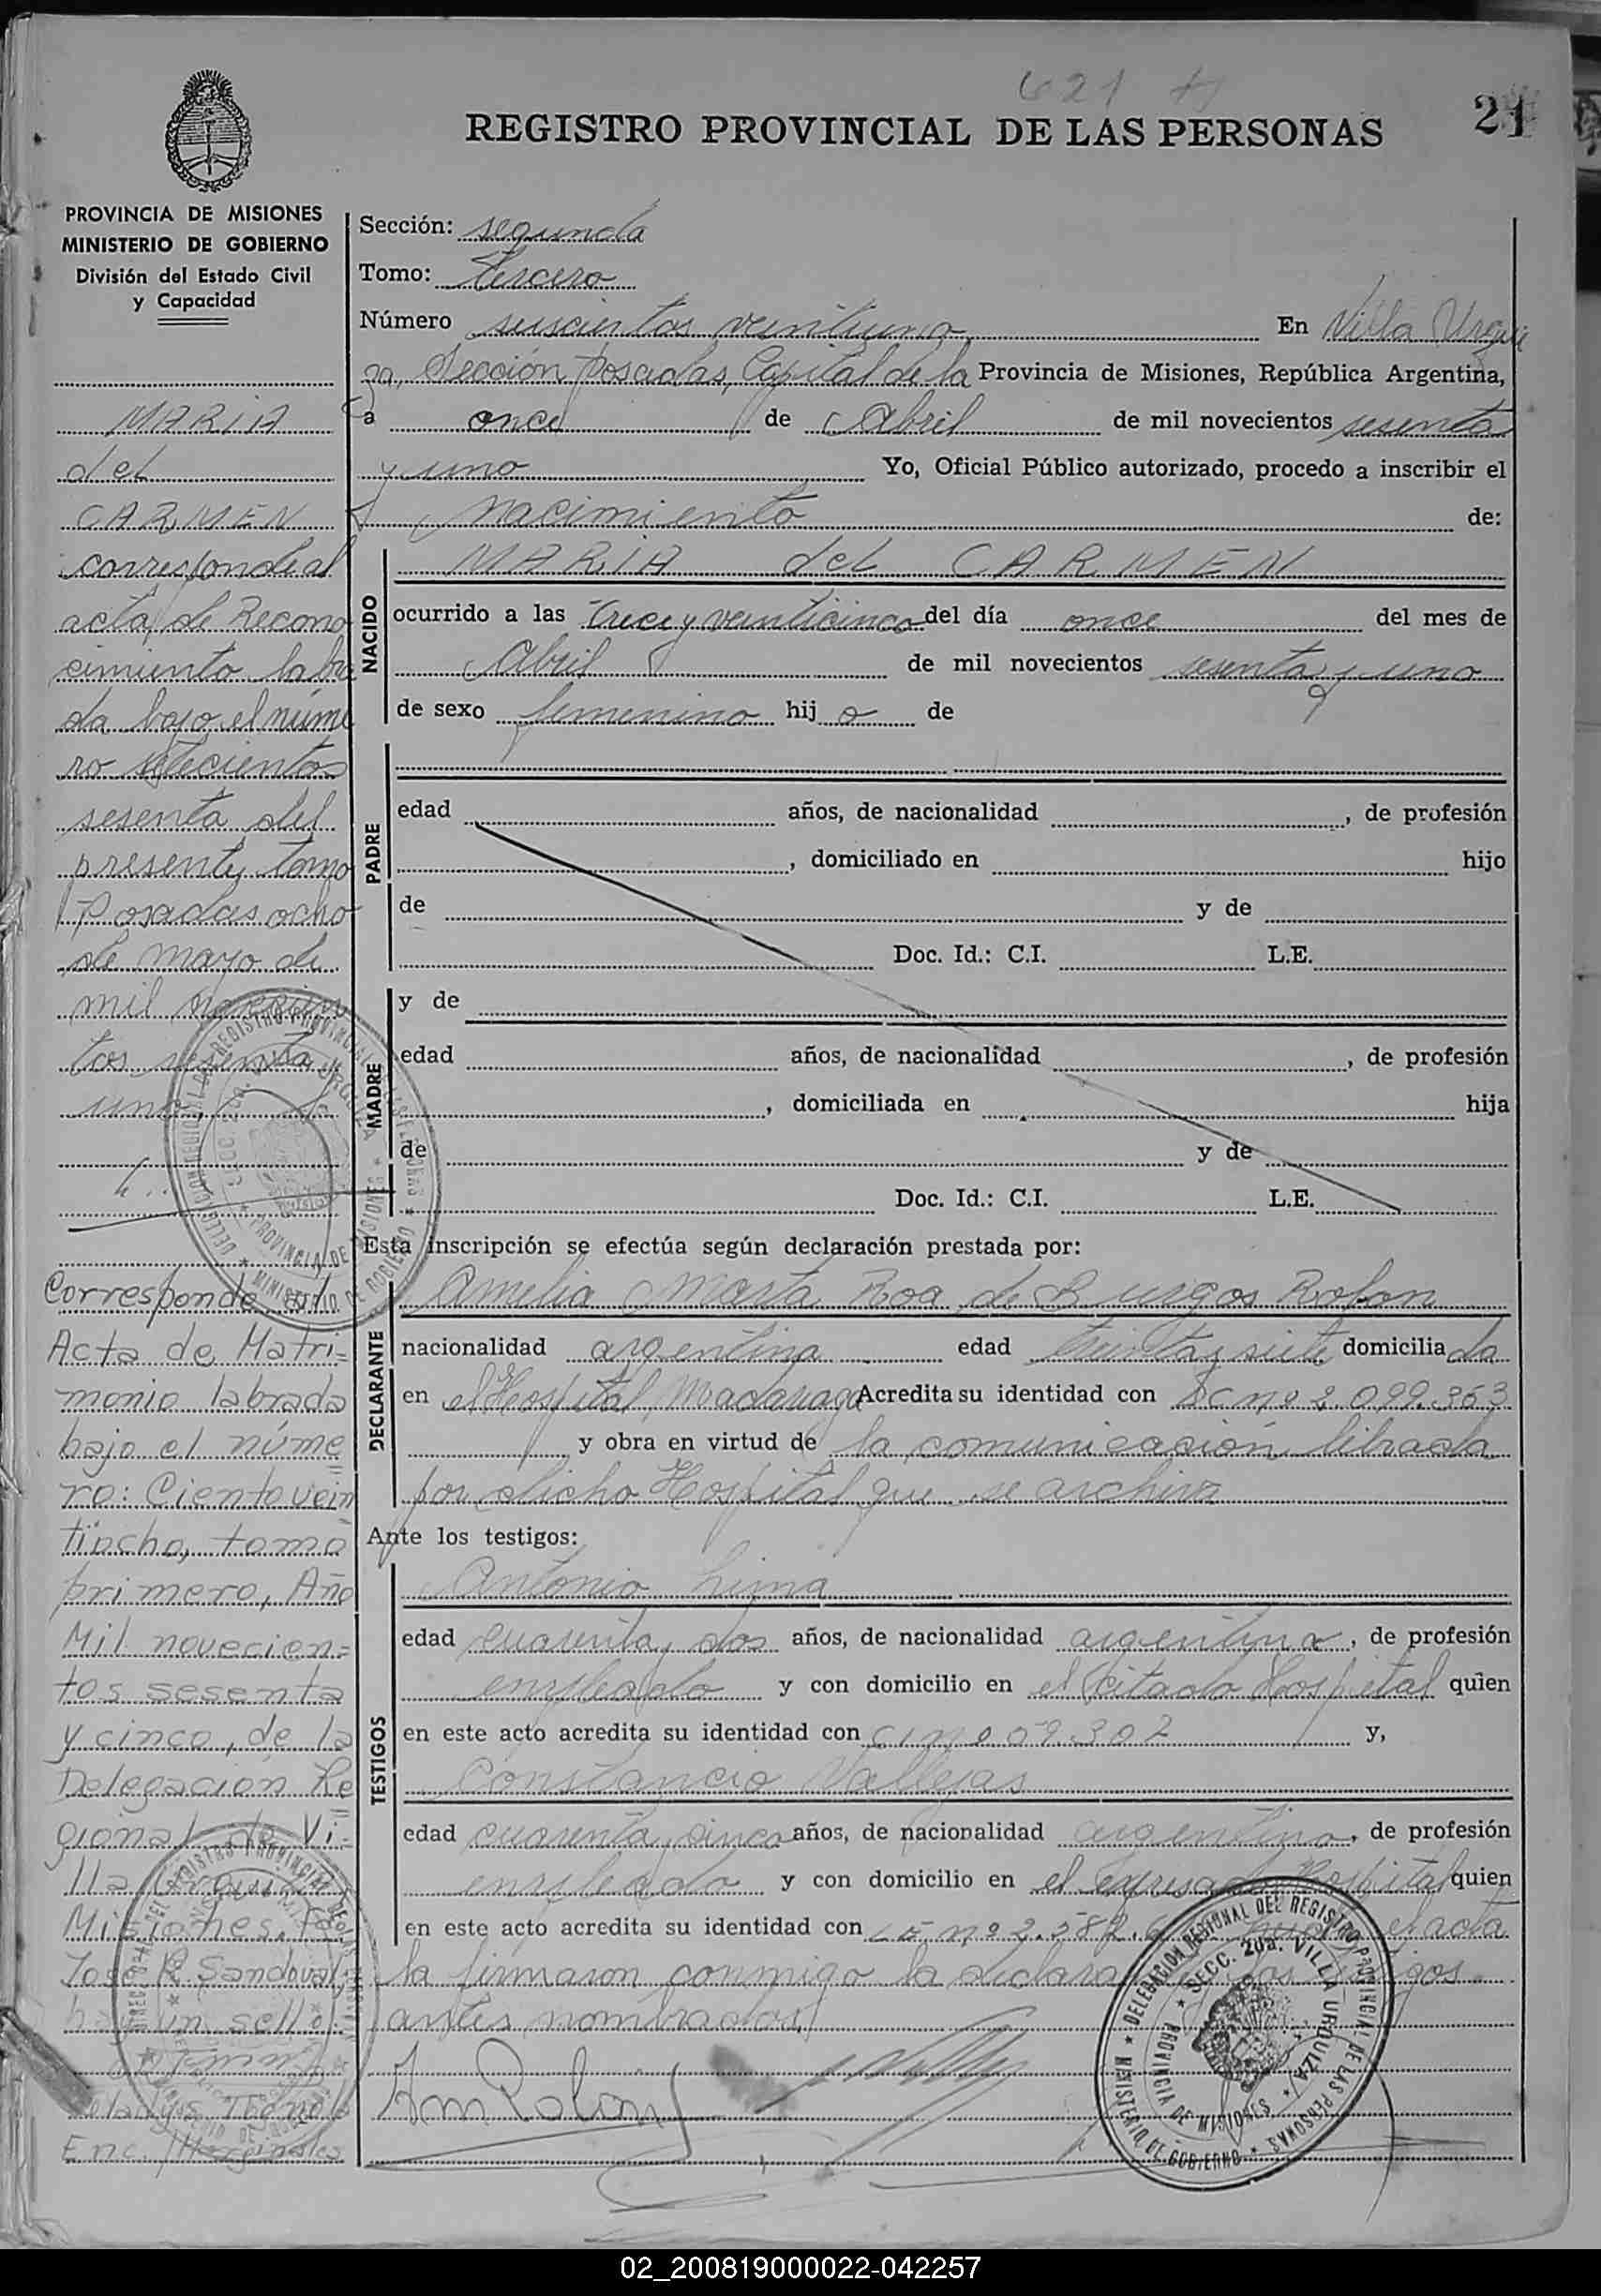 621
21
REGISTRO PROVINCIAL DE LAS PERSONAS
PROVINCIA DE MISIONES
MINISTERIO DE GOBIERNO
División del Estado Civil
y Capacidad
MARIA
del
CARMEN
corresponde al
acta de Recono
cimiento labra
da bajo el núme
ro setecientos
sesenta del
presente tomo
Posadas ocho
de mayo de
mil novecien
tos sesenta y
uno
Corresponde al
Acta de Matri=
monio labrada
bajo el núme
ro: Ciento vein
tiocho, tomo
primero, Año
Mil novecien=
tos sesenta
y cinco, de la
Delegación Re
gional de Vi=
lla Urquiza
Misiones. Fdo
José R. Sandoval
hay un sello
Enc. Marginales
Sección: segunda
Tomo: tercero
Número seiscientos veintiuno En Villa Urqui
za, Sección Posadas, Capital de la Provincia de Misiones, República Argentina,
a once de Abril de mil novecientos sesenta
y uno Yo, Oficial Público autorizado, procedo a inscribir el
nacimiento de:
NACIDO
MARIA del CARMEN
ocurrido a las trece y veinticinco del día once del mes de
Abril de mil novecientos sesenta y uno
de sexo femenino hij a de
PADRE
edad años, de nacionalidad , de profesión
, domiciliado en hijo
de y de
Doc. Id.: C.I. L.E.
MADRE
y de
edad años, de nacionalidad , de profesión
, domiciliada en hija
de y de
Doc. Id.: C.I. L.E.
Esta inscripción se efectúa según declaración prestada por:
DECLARANTE
Amelia Marta Roa de Burgos Rolon
nacionalidad argentina edad treinta y siete domicilia da
en el Hospital Madariaga Acredita su identidad con LC nº 2.099.363
y obra en virtud de la comunicación librada
por dicho Hospital que se archiva
Ante los testigos:
TESTIGOS
Antonio Lima
edad cuarenta y dos años, de nacionalidad argentina, de profesión
empleado y con domicilio en el citado Hospital quien
en este acto acredita su identidad con CI nº 09.302 y,
Constancio Vallejos
edad cuarenta y cinco años, de nacionalidad argentino, de profesión
empleado y con domicilio en el expresado Hospital quien
en este acto acredita su identidad con LE nº 2.582.6 el acta
la firmaron conmigo la declara
antes nombrados
DELEGACION REGIONAL DEL REGISTRO PROVINCIAL DE LAS PERSONAS * MINISTERIO DE GOBIERNO *
SECC. 2da. VILLA URQUIZA * PROVINCIA DE MISIONES *
02_200819000022-042257